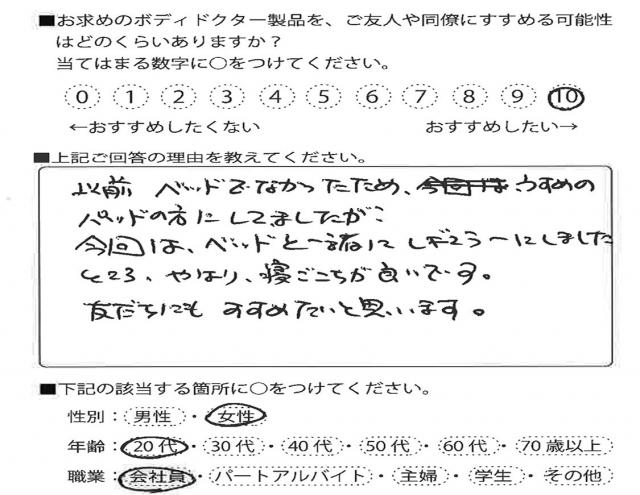 ■お求めのボディドクター製品を、ご友人や同僚にすすめる可能性
はどのくらいありますか？
当てはまる数字に○をつけてください。
0 1 2 3 4 5 6 7 8 9 10
←おすすめしたくない おすすめしたい→
■上記ご回答の理由を教えてください。
以前 ベッドでなかったため、うすめの
パッドの方にしてましたが、
今回は、ベッドと一緒に レギュラーにしました
ところ、やはり、寝ごこちが良いです。
友だちにも すすめたいと思います。
■下記の該当する箇所に○をつけてください。
性別：男性・女性
年齢：20代・30代・40代・50代・60代・70歳以上
職業：会社員・パートアルバイト・主婦・学生・その他